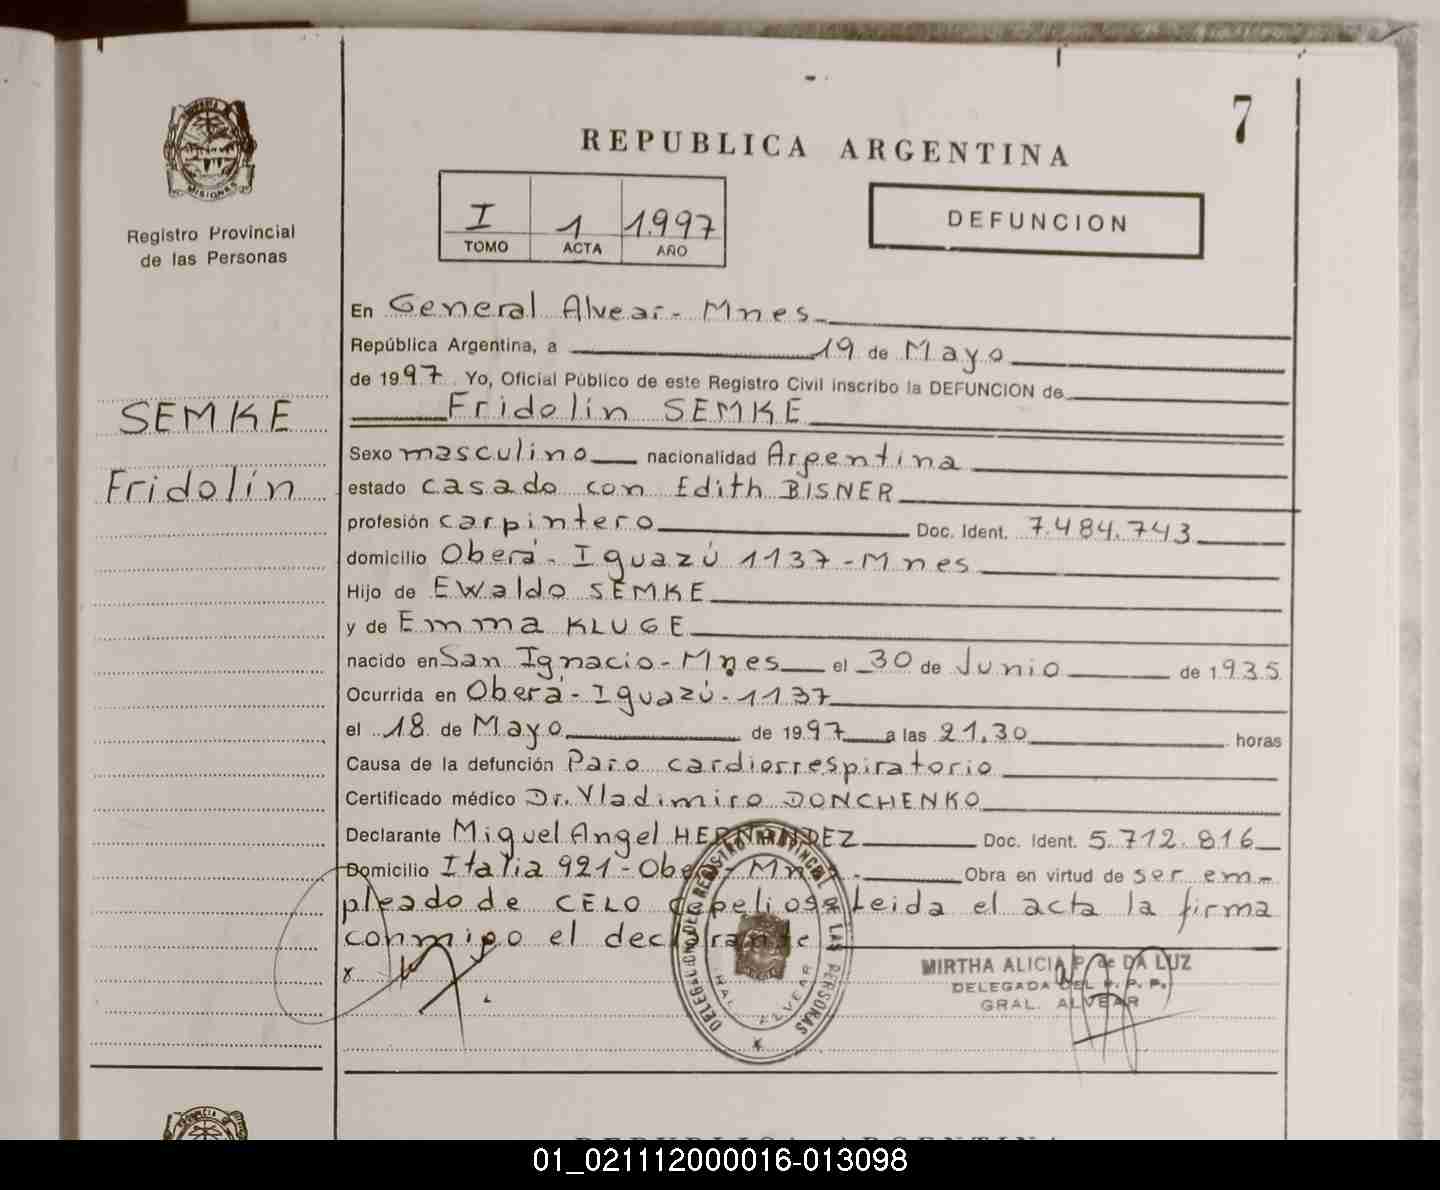 7
REPUBLICA ARGENTINA
PROVINCIA
MISIONES
Registro Provincial
de las Personas
I 1 1.997
TOMO ACTA AÑO
DEFUNCION
SEMKE
Fridolin
En General Alvear - Mnes
República Argentina, a 19 de Mayo
de 1997. Yo, Oficial Público de este Registro Civil inscribo la DEFUNCION de
Fridolin SEMKE
Sexo masculino nacionalidad Argentina
estado casado con Edith BISNER
profesión carpintero Doc. Ident. 7.484.743
domicilio Oberá - Iguazú 1137 - Mnes
Hijo de Ewaldo SEMKE
y de Emma KLUGE
nacido en San Ignacio - Mnes el 30 de Junio de 1935
Ocurrida en Oberá - Iguazú - 1137
el 18 de Mayo de 1997 a las 21,30 horas
Causa de la defunción Paro cardiorrespiratorio
Certificado médico Dr. Vladimiro DONCHENKO
Declarante Miguel Angel HERNANDEZ Doc. Ident. 5.712.816
Domicilio Italia 921 - Oberá - Mnes. Obra en virtud de ser em-
pleado de CELO Leida el acta la firma
conmigo el declarante
x
DELEGACION DEL REGISTRO PROVINCIAL DE LAS PERSONAS
GRAL. ALVEAR
MIRTHA ALICIA P. de DA LUZ
DELEGADA DEL R. P. P.
GRAL. ALVEAR
REPUBLICA ARGENTINA
01_021112000016-013098